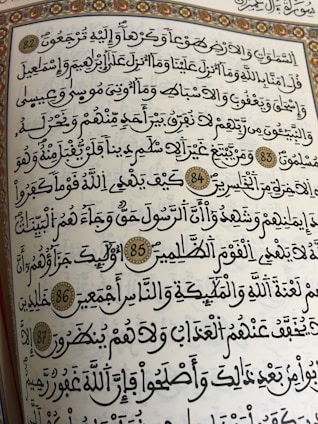 سورة آل عمران
السموات والارض طوعا وكرها وإليه ترجعون 82
قل امنا بالله وما أنزل علينا وما أنزل على إبرهيم وإسمعيل
وإسحق ويعقوب والاسباط وما أوتي موسى وعيسى
والنبيئون من ربهم لا نفرق بين أحد منهم ونحن له
مسلمون 83 ومن يبتغ غير الاسلم دينا فلن يقبل منه وهو
الاخرة من الخسرين 84 كيف يهدي الله قوما كفروا
إيمنهم وشهدوا أن الرسول حق وجاءهم البينت
لا يهدي القوم الظلمين 85 أولئك جزاؤهم أن
لعنة الله والملئكة والناس أجمعين 86 خلدين
لا يخفف عنهم العذاب ولا هم ينظرون 87 إلا
من بعد ذلك وأصلحوا فإن الله غفور رحيم